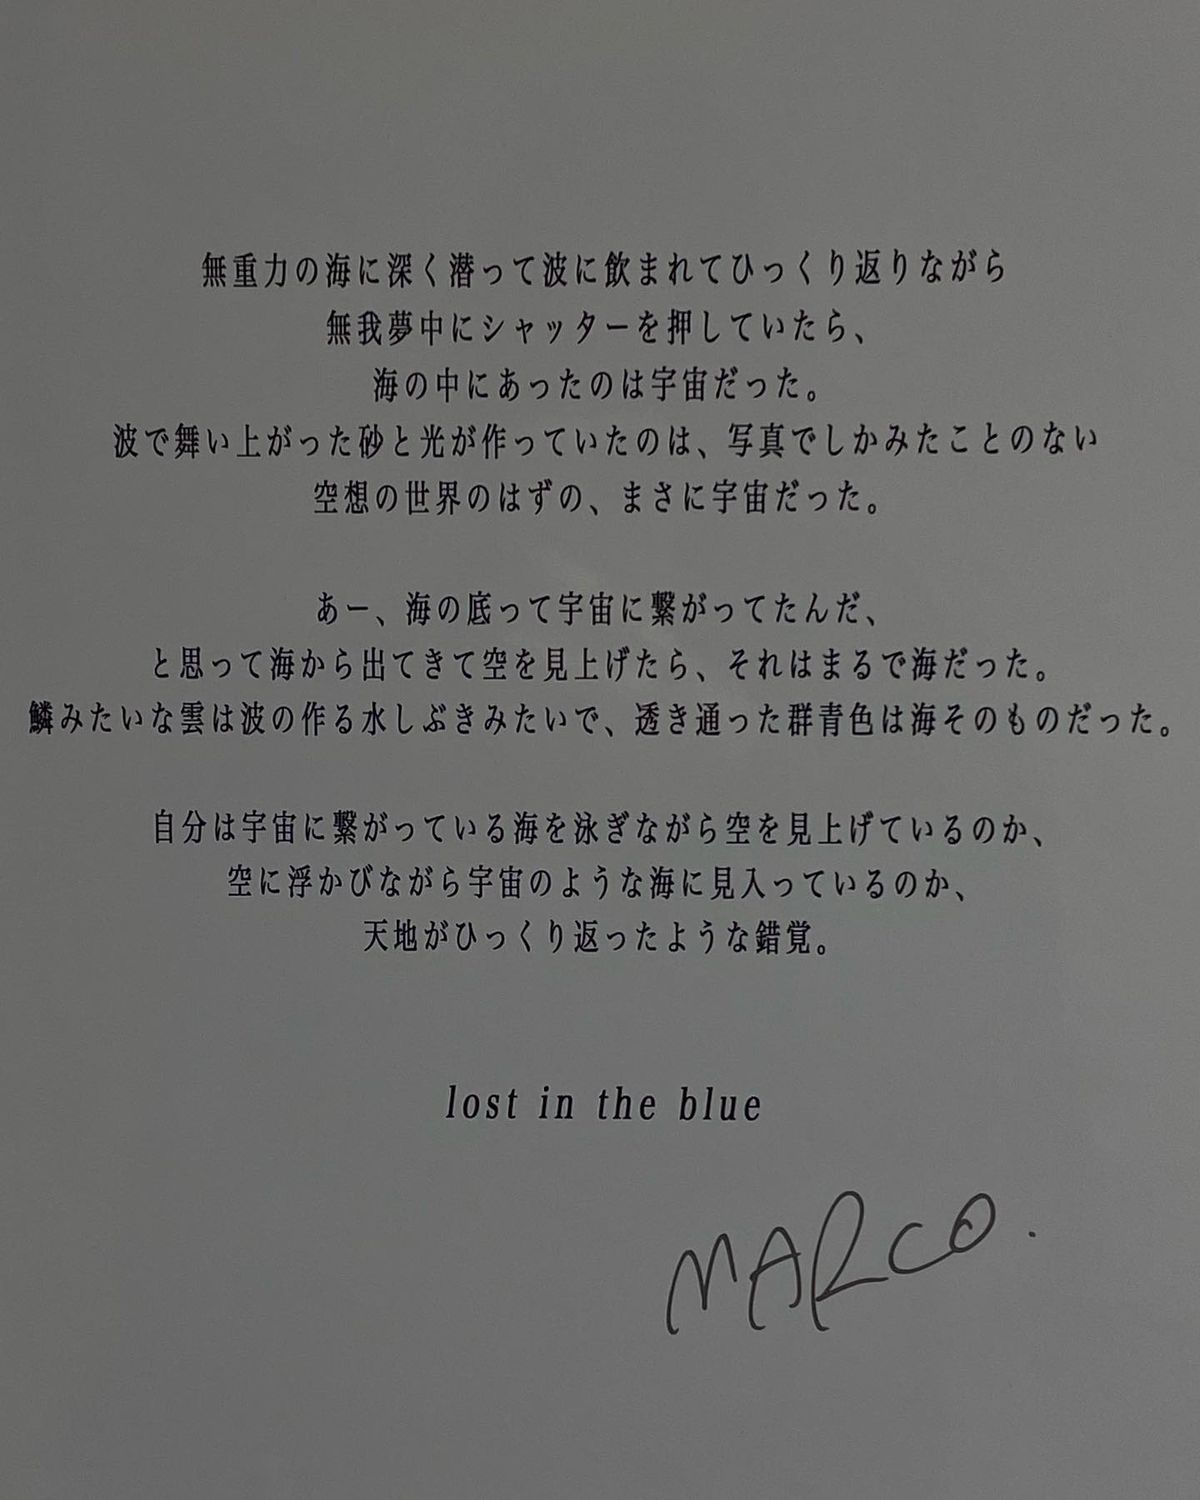 無重力の海に深く潜って波に飲まれてひっくり返りながら
無我夢中にシャッターを押していたら、
海の中にあったのは宇宙だった。
波で舞い上がった砂と光が作っていたのは、写真でしかみたことのない
空想の世界のはずの、まさに宇宙だった。
あー、海の底って宇宙に繋がってたんだ、
と思って海から出てきて空を見上げたら、それはまるで海だった。
鱗みたいな雲は波の作る水しぶきみたいで、透き通った群青色は海そのものだった。
自分は宇宙に繋がっている海を泳ぎながら空を見上げているのか、
空に浮かびながら宇宙のような海に見入っているのか、
天地がひっくり返ったような錯覚。
lost in the blue
MARCO.